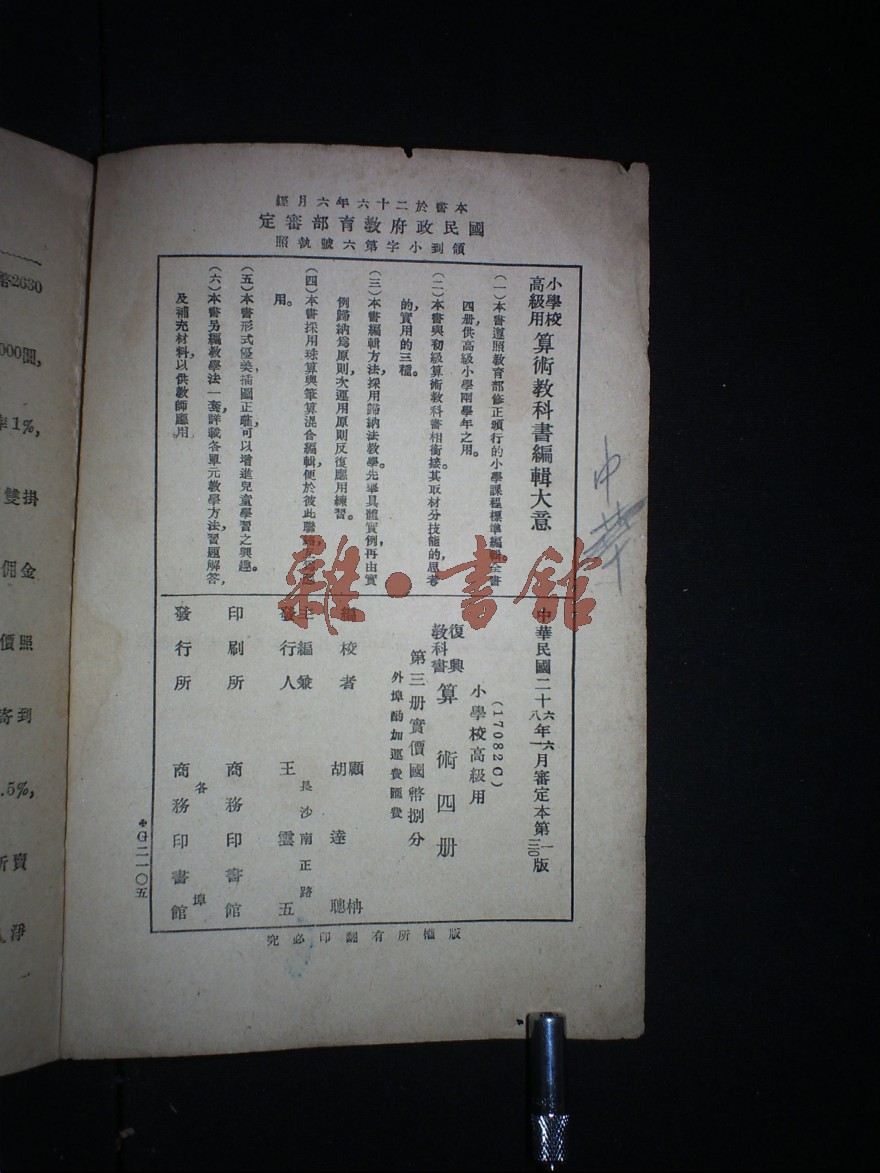 本書於二十六年六月經
國民政府教育部審定
領到小字第六號執照
小學校
高級用
算術教科書編輯大意
(一)本書遵照教育部修正頒行的小學課程標準編輯全書
四册,供高級小學兩學年之用。
(二)本書與初級算術教科書相銜接。其取材分技能的,思考
的,實用的三種。
(三)本書編輯方法,採用歸納法教學。先舉具體實例,再由實
例歸納爲原則,次運用原則反復應用練習。
(四)本書採用珠算與筆算混合編輯,便於彼此聯絡
用。
(五)本書形式優美,插圖正確,可以增進兒童學習之興趣。
(六)本書另編教學法一套,詳載各單元教學方法,習題解答,
及補充材料,以供教師應用
中華民國二十六年六月審定本第一版
八 一 一三〇
(17082G)
小學校高級用
復興
教科書
算術四册
第三册實價國幣捌分
外埠酌加運費匯費
編校者 顧枬
胡達聰
主編兼
發行人 王雲五
長沙南正路
印刷所 商務印書館
發行所 商務印書館
各埠
版權所有翻印必究
✠G二一〇五
中華
雜·書館
幣2630
000圓,
率1%,
雙掛
佣金
價照
寄到
.5%,
所賣
淨